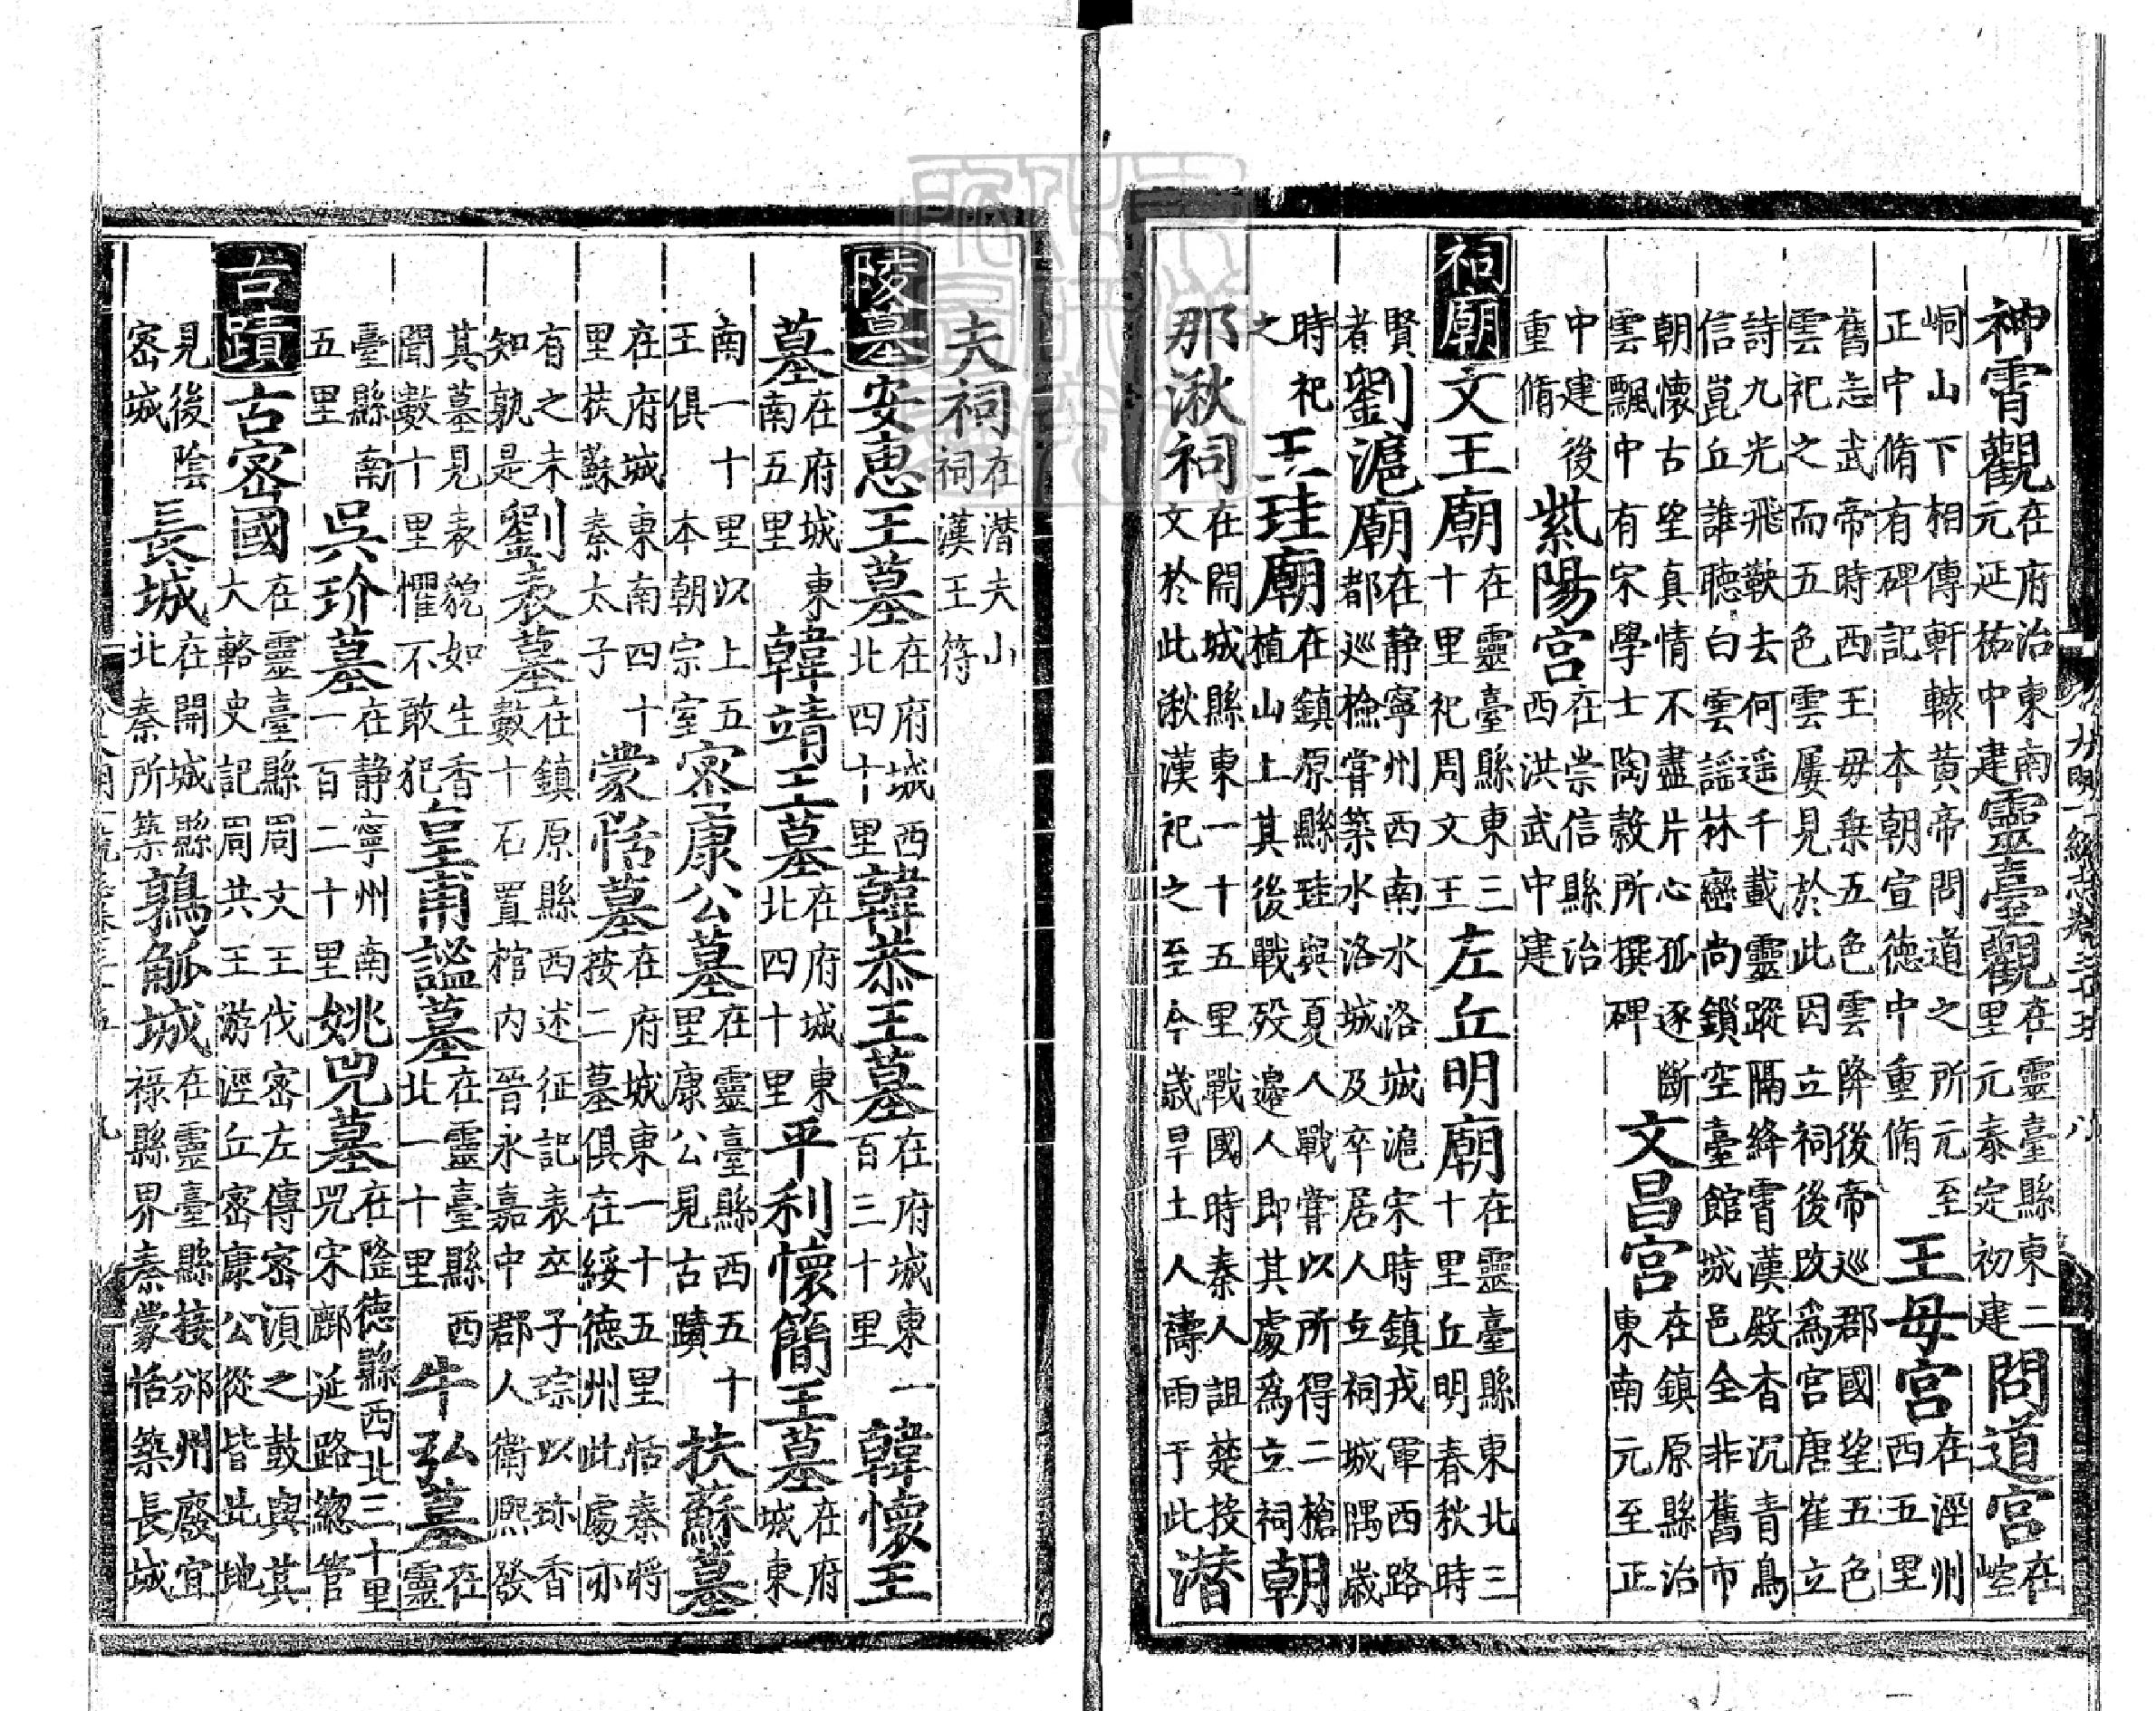 神霄觀在府治東南元延祐中建靈臺觀在靈臺縣東二里元泰定初建問道宮在崆
峒山下相傳軒轅黃帝問道之所元至正中脩有碑記本朝宣德中重脩王母宮在涇州西五里
舊志武帝時西王母乘五色雲降後帝巡郡國望五色雲祀之而五色雲屢見於此因立祠後改爲宮唐崔立
詩九光飛歘去何遥千載靈蹤隔絳霄漢殿杳沉青鳥信崑丘誰聽白雲謡林巒尚鎖空臺館城邑全非舊市
朝懷古望真情不盡片心孤逐斷雲飄中有宋學士陶穀所撰碑文昌宮在鎮原縣治東南元至正
中建後重脩紫陽宮在崇信縣治西洪武中建
祠廟文王廟在靈臺縣東三十里祀周文王左丘明廟在靈臺縣東北三十里丘明春秋時
賢者劉滬廟在静寧州西南水洛城滬宋時鎮戎軍西路都巡檢嘗築水洛城及卒居人立祠城隅歲
時祀之王珪廟在鎮原縣珪與夏人戰嘗以所得二槍植山上其後戰殁邉人即其處爲立祠朝
那湫祠在開城縣東一十五里戰國時秦人詛楚投文於此湫漢祀之至今歲旱土人禱雨于此潜
夫祠在潜夫山祠漢王符
陵墓安惠王墓在府城西北四十里韓恭王墓在府城東一百三十里韓懷王
墓在府城東南五里韓靖王墓在府城東北四十里平利懷簡王墓在府城東
南一十里以上五王俱本朝宗室密康公墓在靈臺縣西五十里康公見古蹟扶蘇墓
在府城東南四十里扶蘇秦太子蒙恬墓在府城東一十五里恬秦將按二墓俱在綏德州此處亦
有之未知孰是劉表墓在鎮原縣西述征記表卒子琮以珎香數十石置棺内晉永嘉中郡人衛熙發
其墓見表貌如生香聞數十里懼不敢犯皇甫謐墓在靈臺縣西北一十里牛弘墓在靈
臺縣南五里吳玠墓在静寧州南一百二十里姚兕墓在隆德縣西北三十里兕宋鄜延路緫管
古蹟古密國在靈臺縣周文王伐密左傳密湏之鼓與其大輅史記周共王游涇丘密康公從皆此地
見後陰密城長城在開城縣北秦所築鶉觚城在靈臺縣接邠州廢宜祿縣界秦蒙恬築長城